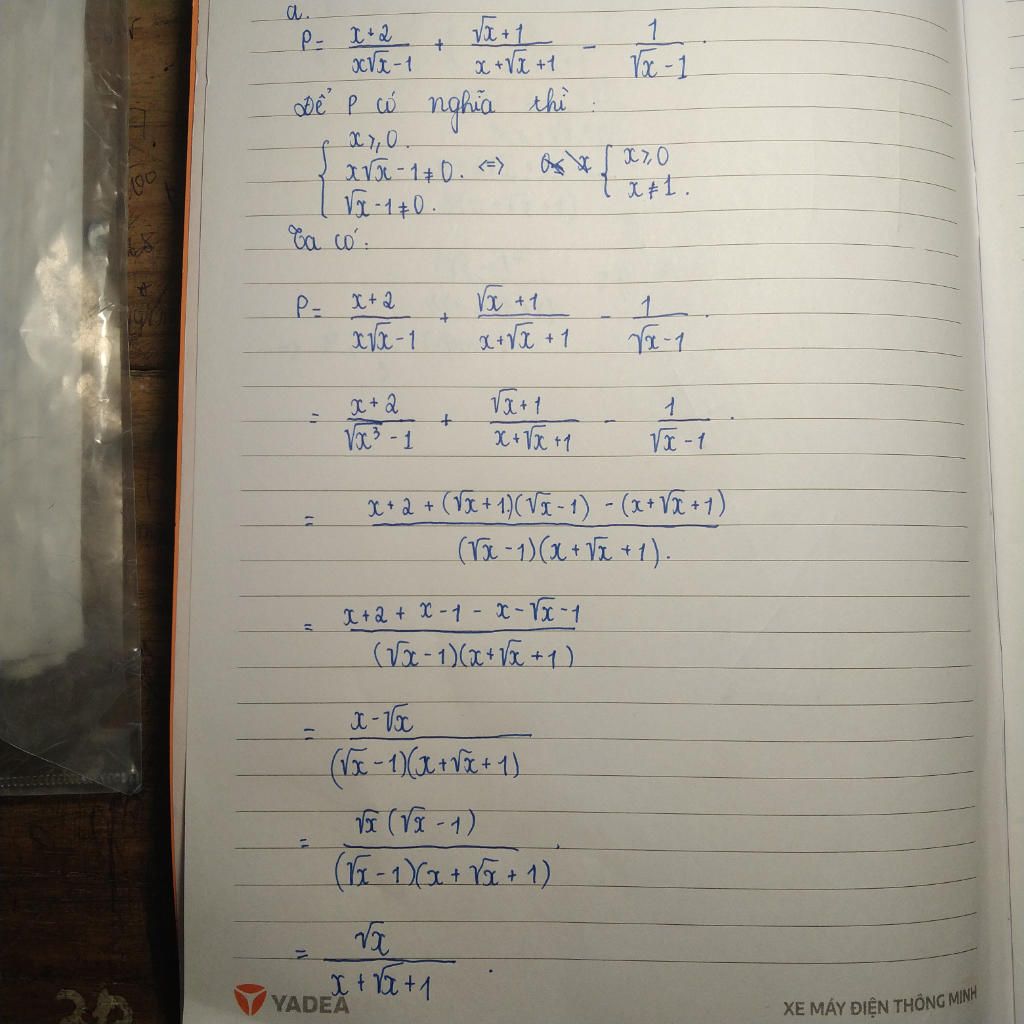 a.
P = \frac{x+2}{x\sqrt{x}-1} + \frac{\sqrt{x}+1}{x+\sqrt{x}+1} - \frac{1}{\sqrt{x}-1}.
Để P có nghĩa thì :
\begin{cases} x \geqslant 0. \\ x\sqrt{x}-1 \neq 0. \\ \sqrt{x}-1 \neq 0. \end{cases} <=> \begin{cases} x \geqslant 0 \\ x \neq 1. \end{cases}
Ta có:
P = \frac{x+2}{x\sqrt{x}-1} + \frac{\sqrt{x}+1}{x+\sqrt{x}+1} - \frac{1}{\sqrt{x}-1}.
= \frac{x+2}{\sqrt{x^3}-1} + \frac{\sqrt{x}+1}{x+\sqrt{x}+1} - \frac{1}{\sqrt{x}-1}.
= \frac{x+2+(\sqrt{x}+1)(\sqrt{x}-1)-(x+\sqrt{x}+1)}{(\sqrt{x}-1)(x+\sqrt{x}+1)}.
= \frac{x+2+x-1-x-\sqrt{x}-1}{(\sqrt{x}-1)(x+\sqrt{x}+1)}
= \frac{x-\sqrt{x}}{(\sqrt{x}-1)(x+\sqrt{x}+1)}
= \frac{\sqrt{x}(\sqrt{x}-1)}{(\sqrt{x}-1)(x+\sqrt{x}+1)}.
= \frac{\sqrt{x}}{x+\sqrt{x}+1}.
YADEA
XE MÁY ĐIỆN THÔNG MINH